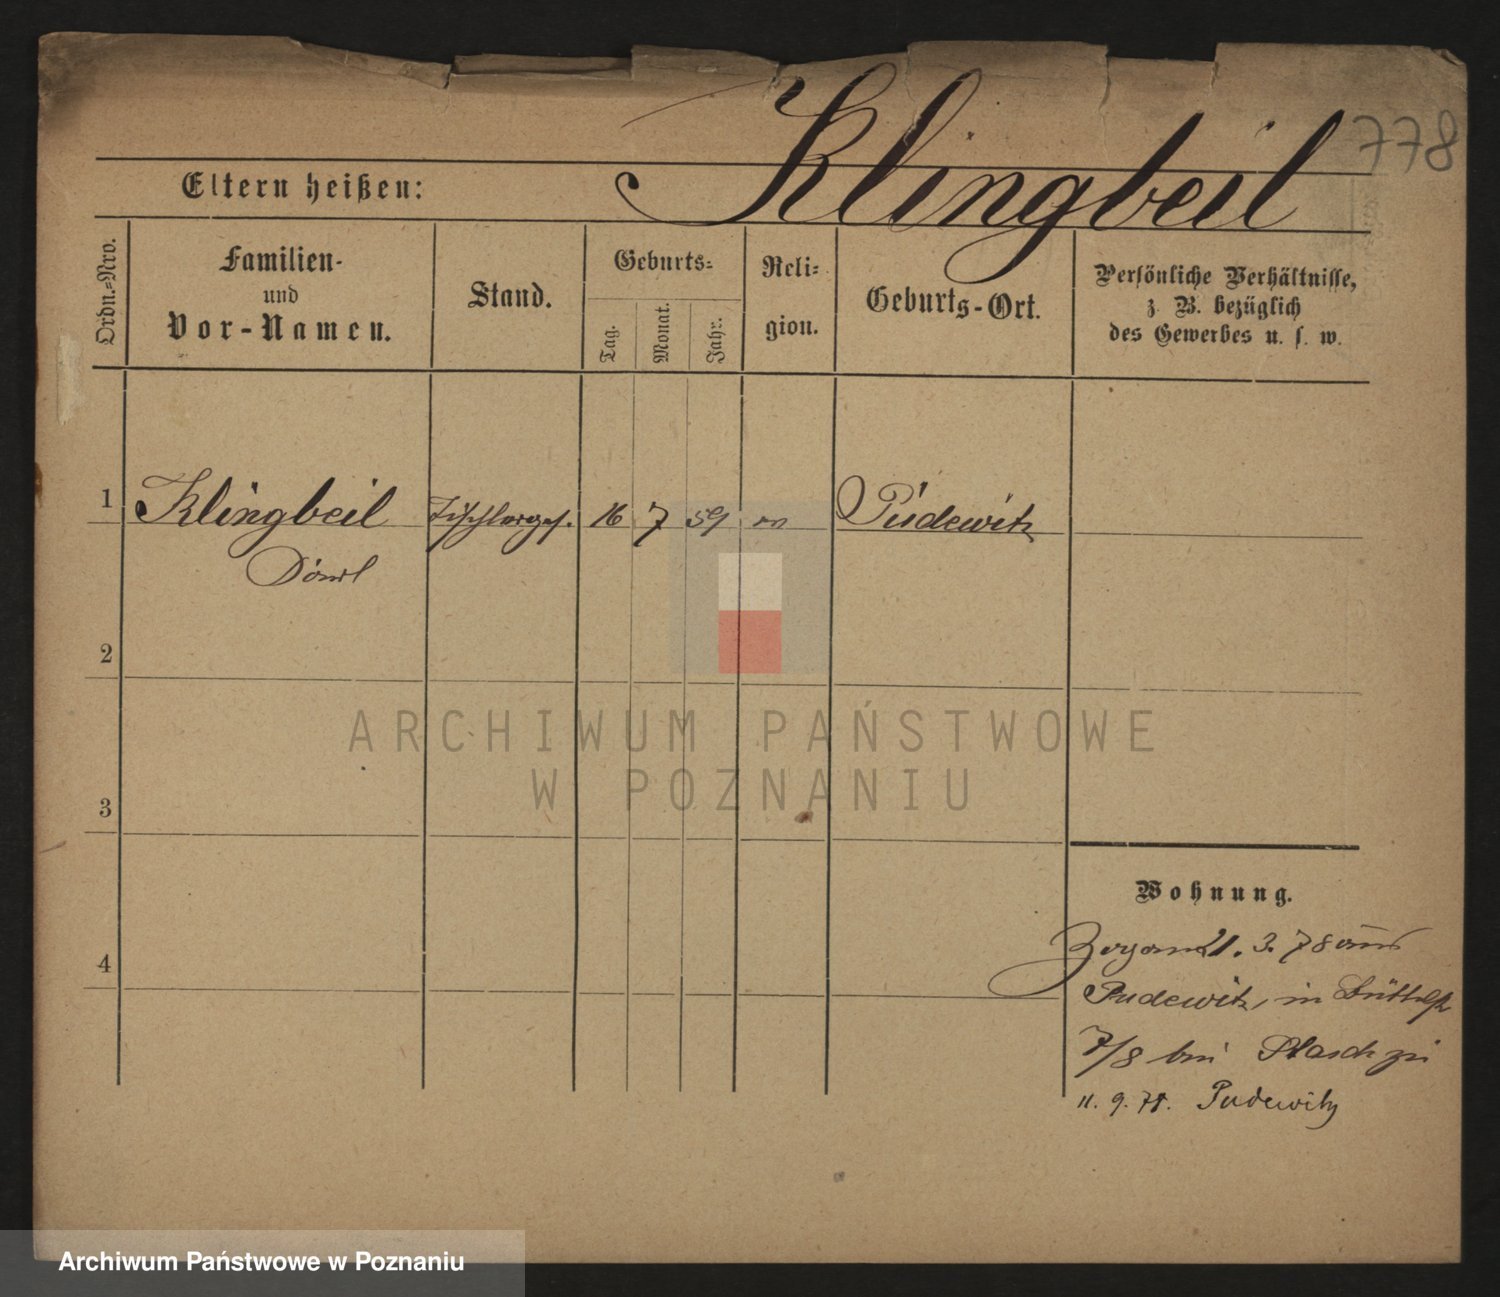 Klingbeil
778
Eltern heißen:
Ordn.=Nro.
Familien-
und
Vor-Namen.
Stand.
Geburts=
Tag.
Monat.
Jahr.
Reli=
gion.
Geburts-Ort.
Persönliche Verhältnisse,
z. B. bezüglich
des Gewerbes u. s. w.
1
Klingbeil
Tischlerges.
16
7
59
Pudewitz
2
3
4
ARCHIWUM PAŃSTWOWE
W POZNANIU
Wohnung.
21. 3. 78 aus
Pudewitz, in
7/8 bei
11. 9. 78. Pudewitz
Archiwum Państwowe w Poznaniu